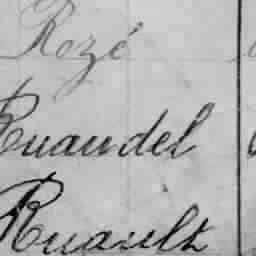 Rozé
Ruaudel
Ruault